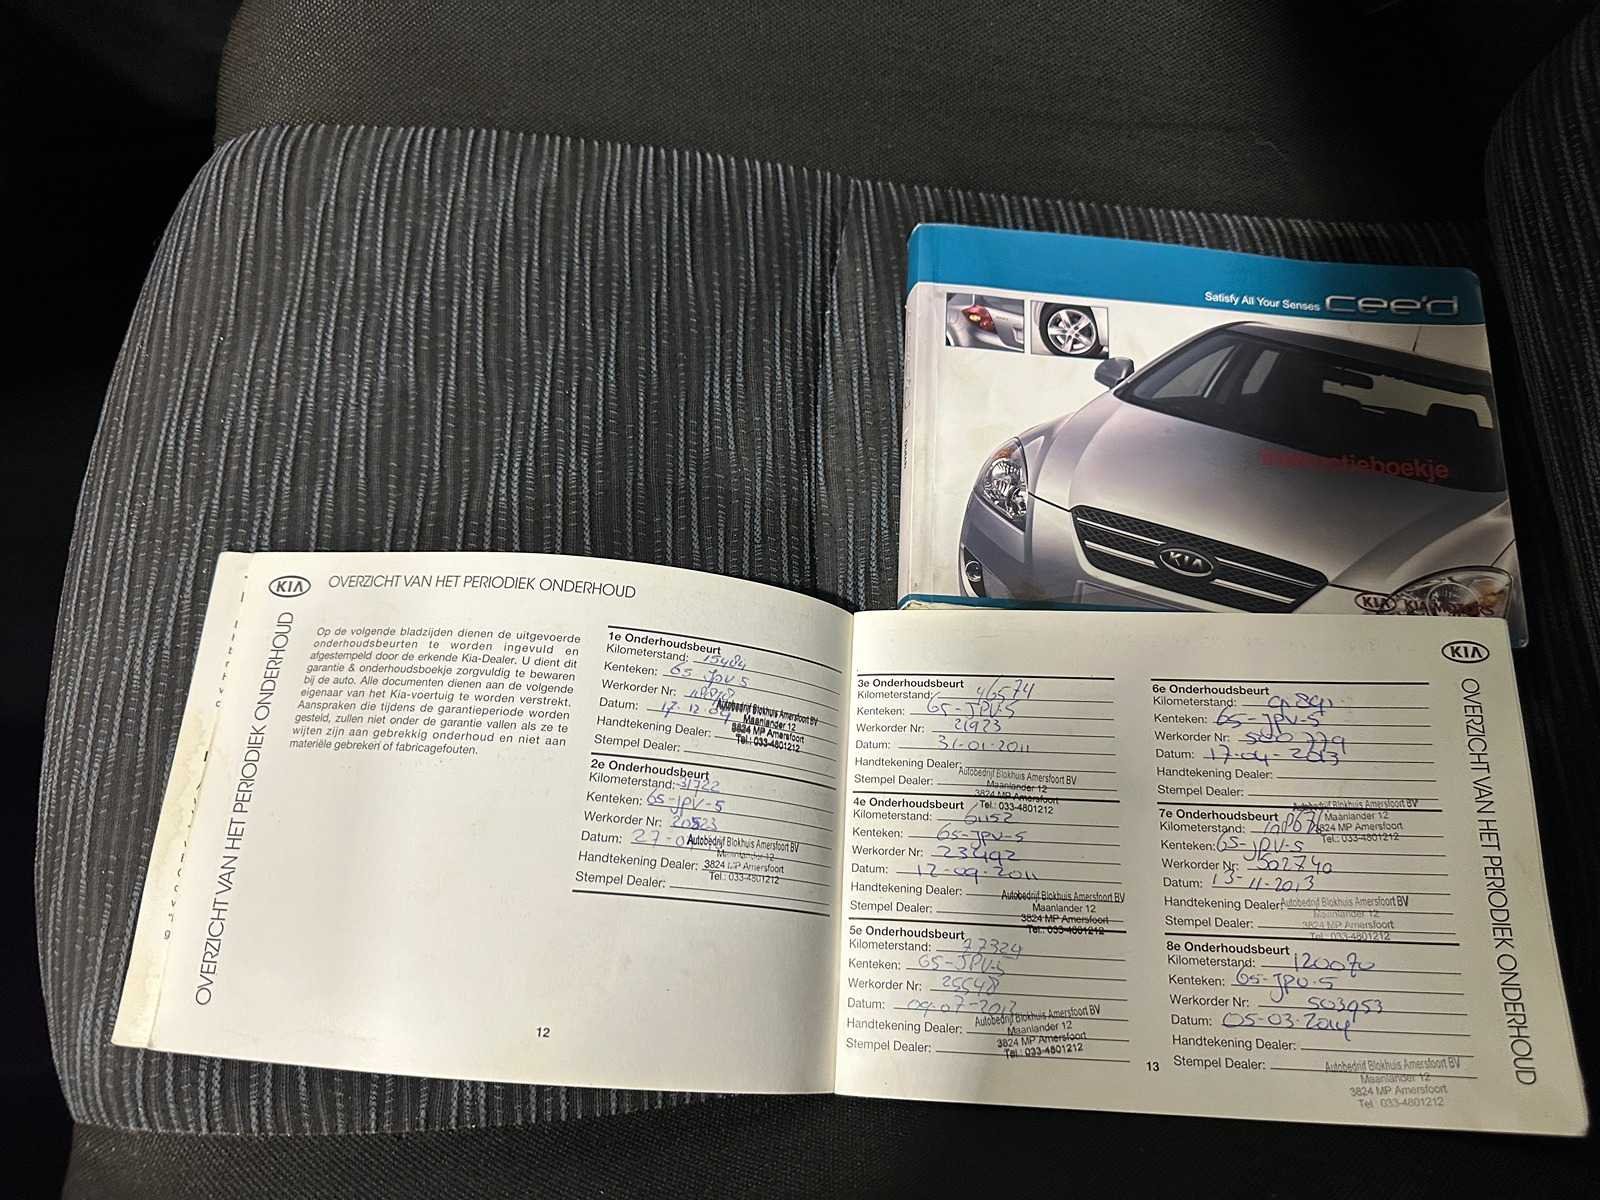 Satisfy All Your Senses cee'd
KIA
KIA KIA MOTORS
KIA OVERZICHT VAN HET PERIODIEK ONDERHOUD
OVERZICHT VAN HET PERIODIEK ONDERHOUD
Op de volgende bladzijden dienen de uitgevoerde
onderhoudsbeurten te worden ingevuld en
afgestempeld door de erkende Kia-Dealer. U dient dit
garantie & onderhoudsboekje zorgvuldig te bewaren
bij de auto. Alle documenten dienen aan de volgende
eigenaar van het Kia-voertuig te worden verstrekt.
Aanspraken die tijdens de garantieperiode worden
gesteld, zullen niet onder de garantie vallen als ze te
wijten zijn aan gebrekkig onderhoud en niet aan
materiële gebreken of fabricagefouten.
1e Onderhoudsbeurt
Kilometerstand: 15484
Kenteken: 65-JPV-5
Werkorder Nr:
Datum: 17-12-09
Handtekening Dealer:
Stempel Dealer:
Autobedrijf Blokhuis Amersfoort BV
Maanlander 12
3824 MP Amersfoort
Tel.: 033-4801212
2e Onderhoudsbeurt
Kilometerstand: 31722
Kenteken: 65-JPV-5
Werkorder Nr: 20523
Datum: 27-0
Handtekening Dealer:
Stempel Dealer:
Autobedrijf Blokhuis Amersfoort BV
Maanlander 12
3824 MP Amersfoort
Tel.: 033-4801212
12
3e Onderhoudsbeurt
Kilometerstand: 46574
Kenteken: 65-JPV-5
Werkorder Nr: 21923
Datum: 31-01-2011
Handtekening Dealer:
Stempel Dealer:
Autobedrijf Blokhuis Amersfoort BV
Maanlander 12
3824 MP Amersfoort
Tel.: 033-4801212
4e Onderhoudsbeurt
Kilometerstand: 61152
Kenteken: 65-JPV-5
Werkorder Nr: 23492
Datum: 12-09-2011
Handtekening Dealer:
Stempel Dealer:
Autobedrijf Blokhuis Amersfoort BV
Maanlander 12
3824 MP Amersfoort
Tel.: 033-4801212
5e Onderhoudsbeurt
Kilometerstand: 77324
Kenteken: 65-JPV-5
Werkorder Nr: 25548
Datum: 09-07-2012
Handtekening Dealer:
Stempel Dealer:
Autobedrijf Blokhuis Amersfoort BV
Maanlander 12
3824 MP Amersfoort
Tel.: 033-4801212
KIA
OVERZICHT VAN HET PERIODIEK ONDERHOUD
6e Onderhoudsbeurt
Kilometerstand:
Kenteken: 65-JPV-5
Werkorder Nr: 500779
Datum: 17-04-2013
Handtekening Dealer:
Stempel Dealer:
Autobedrijf Blokhuis Amersfoort BV
Maanlander 12
3824 MP Amersfoort
Tel.: 033-4801212
7e Onderhoudsbeurt
Kilometerstand:
Kenteken: 65-JPV-5
Werkorder Nr: 502740
Datum: 13-11-2013
Handtekening Dealer:
Stempel Dealer:
Autobedrijf Blokhuis Amersfoort BV
Maanlander 12
3824 MP Amersfoort
Tel.: 033-4801212
8e Onderhoudsbeurt
Kilometerstand: 120070
Kenteken: 65-JPV-5
Werkorder Nr: 503953
Datum: 05-03-2014
Handtekening Dealer:
Stempel Dealer:
Autobedrijf Blokhuis Amersfoort BV
Maanlander 12
3824 MP Amersfoort
Tel.: 033-4801212
13